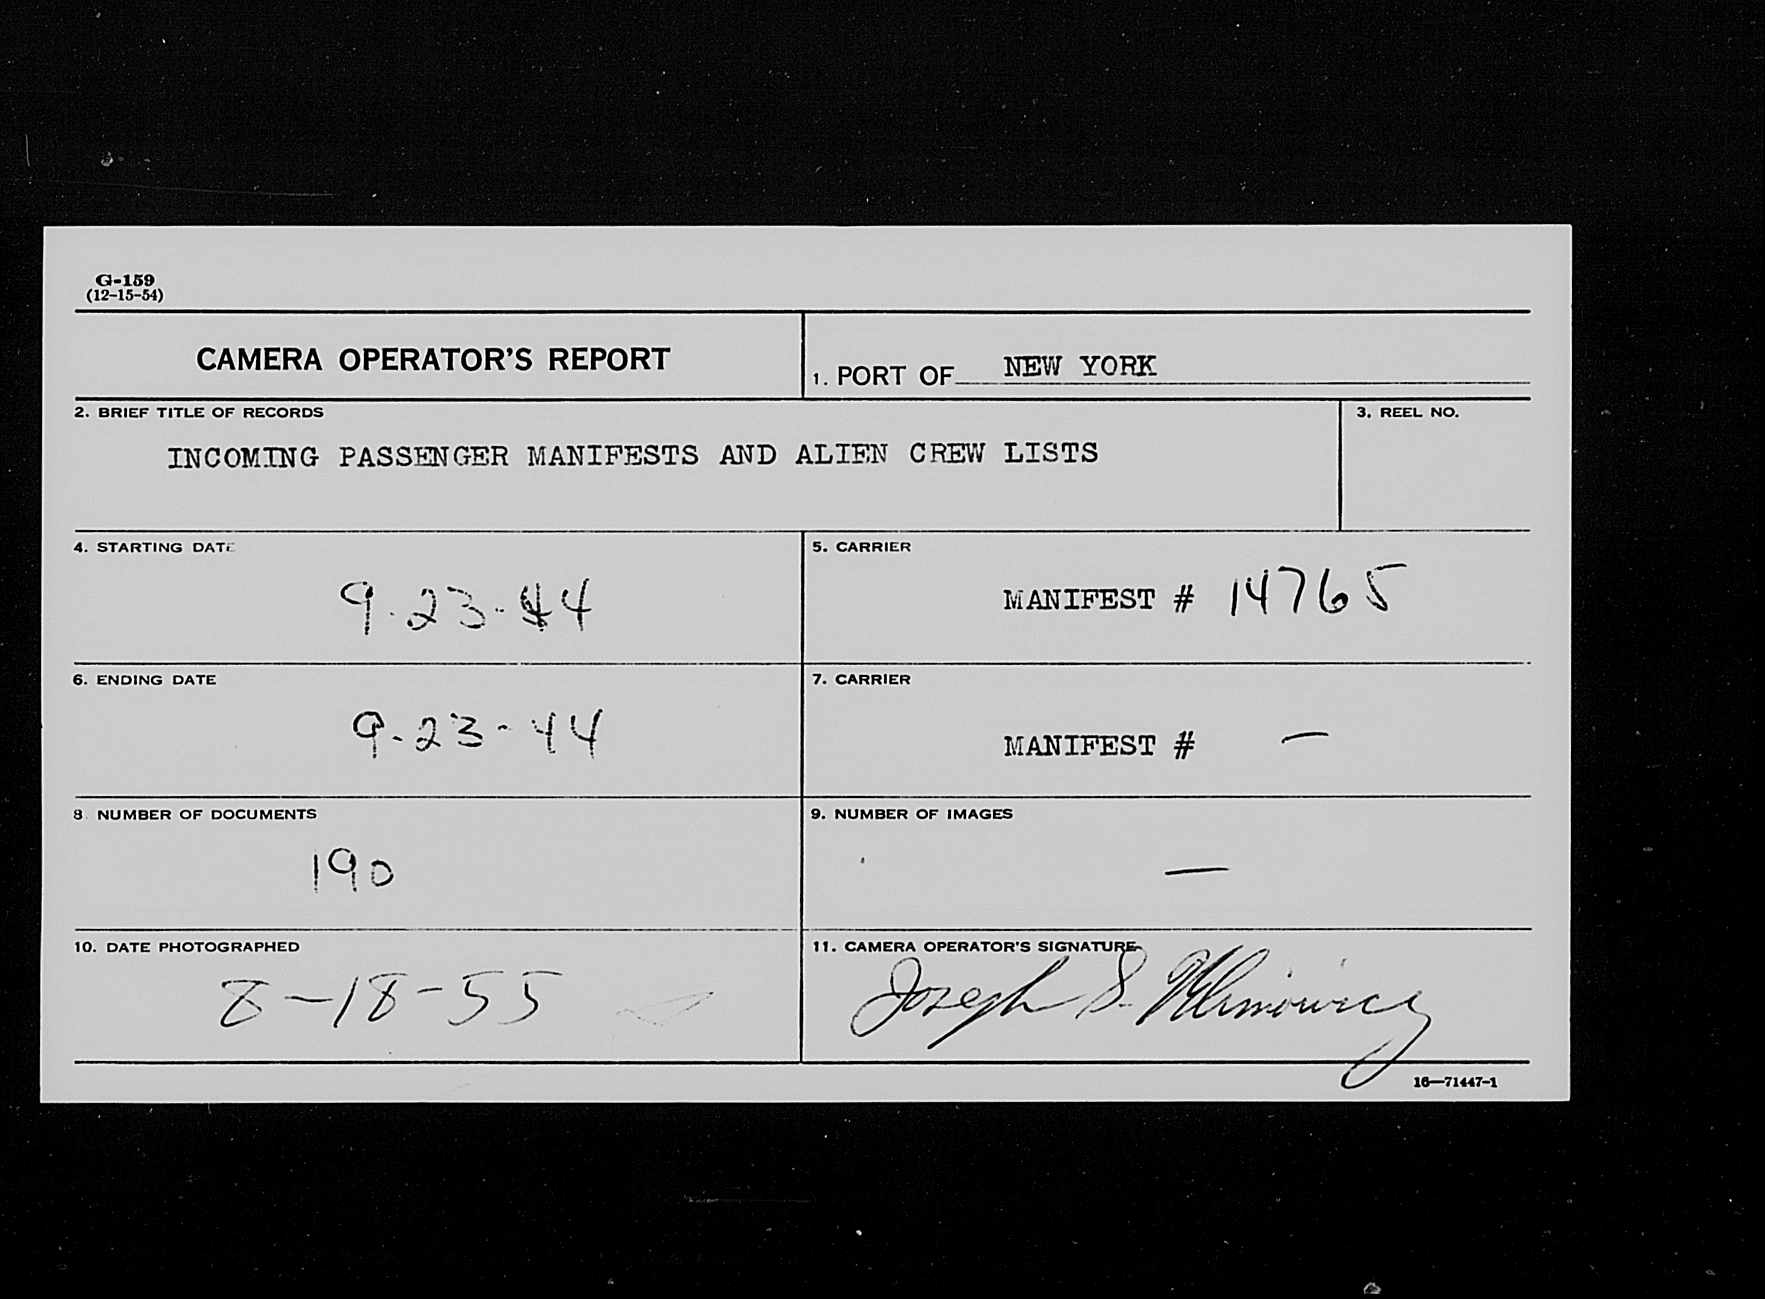 G-159
(12-15-54)
CAMERA OPERATOR'S REPORT
1. PORT OF NEW YORK
2. BRIEF TITLE OF RECORDS
3. REEL NO.
INCOMING PASSENGER MANIFESTS AND ALIEN CREW LISTS
4. STARTING DATE
5. CARRIER
9-23-44
MANIFEST # 14765
6. ENDING DATE
7. CARRIER
9-23-44
MANIFEST # —
8. NUMBER OF DOCUMENTS
9. NUMBER OF IMAGES
190
—
10. DATE PHOTOGRAPHED
11. CAMERA OPERATOR'S SIGNATURE
8-18-55
Joseph S.
16—71447-1